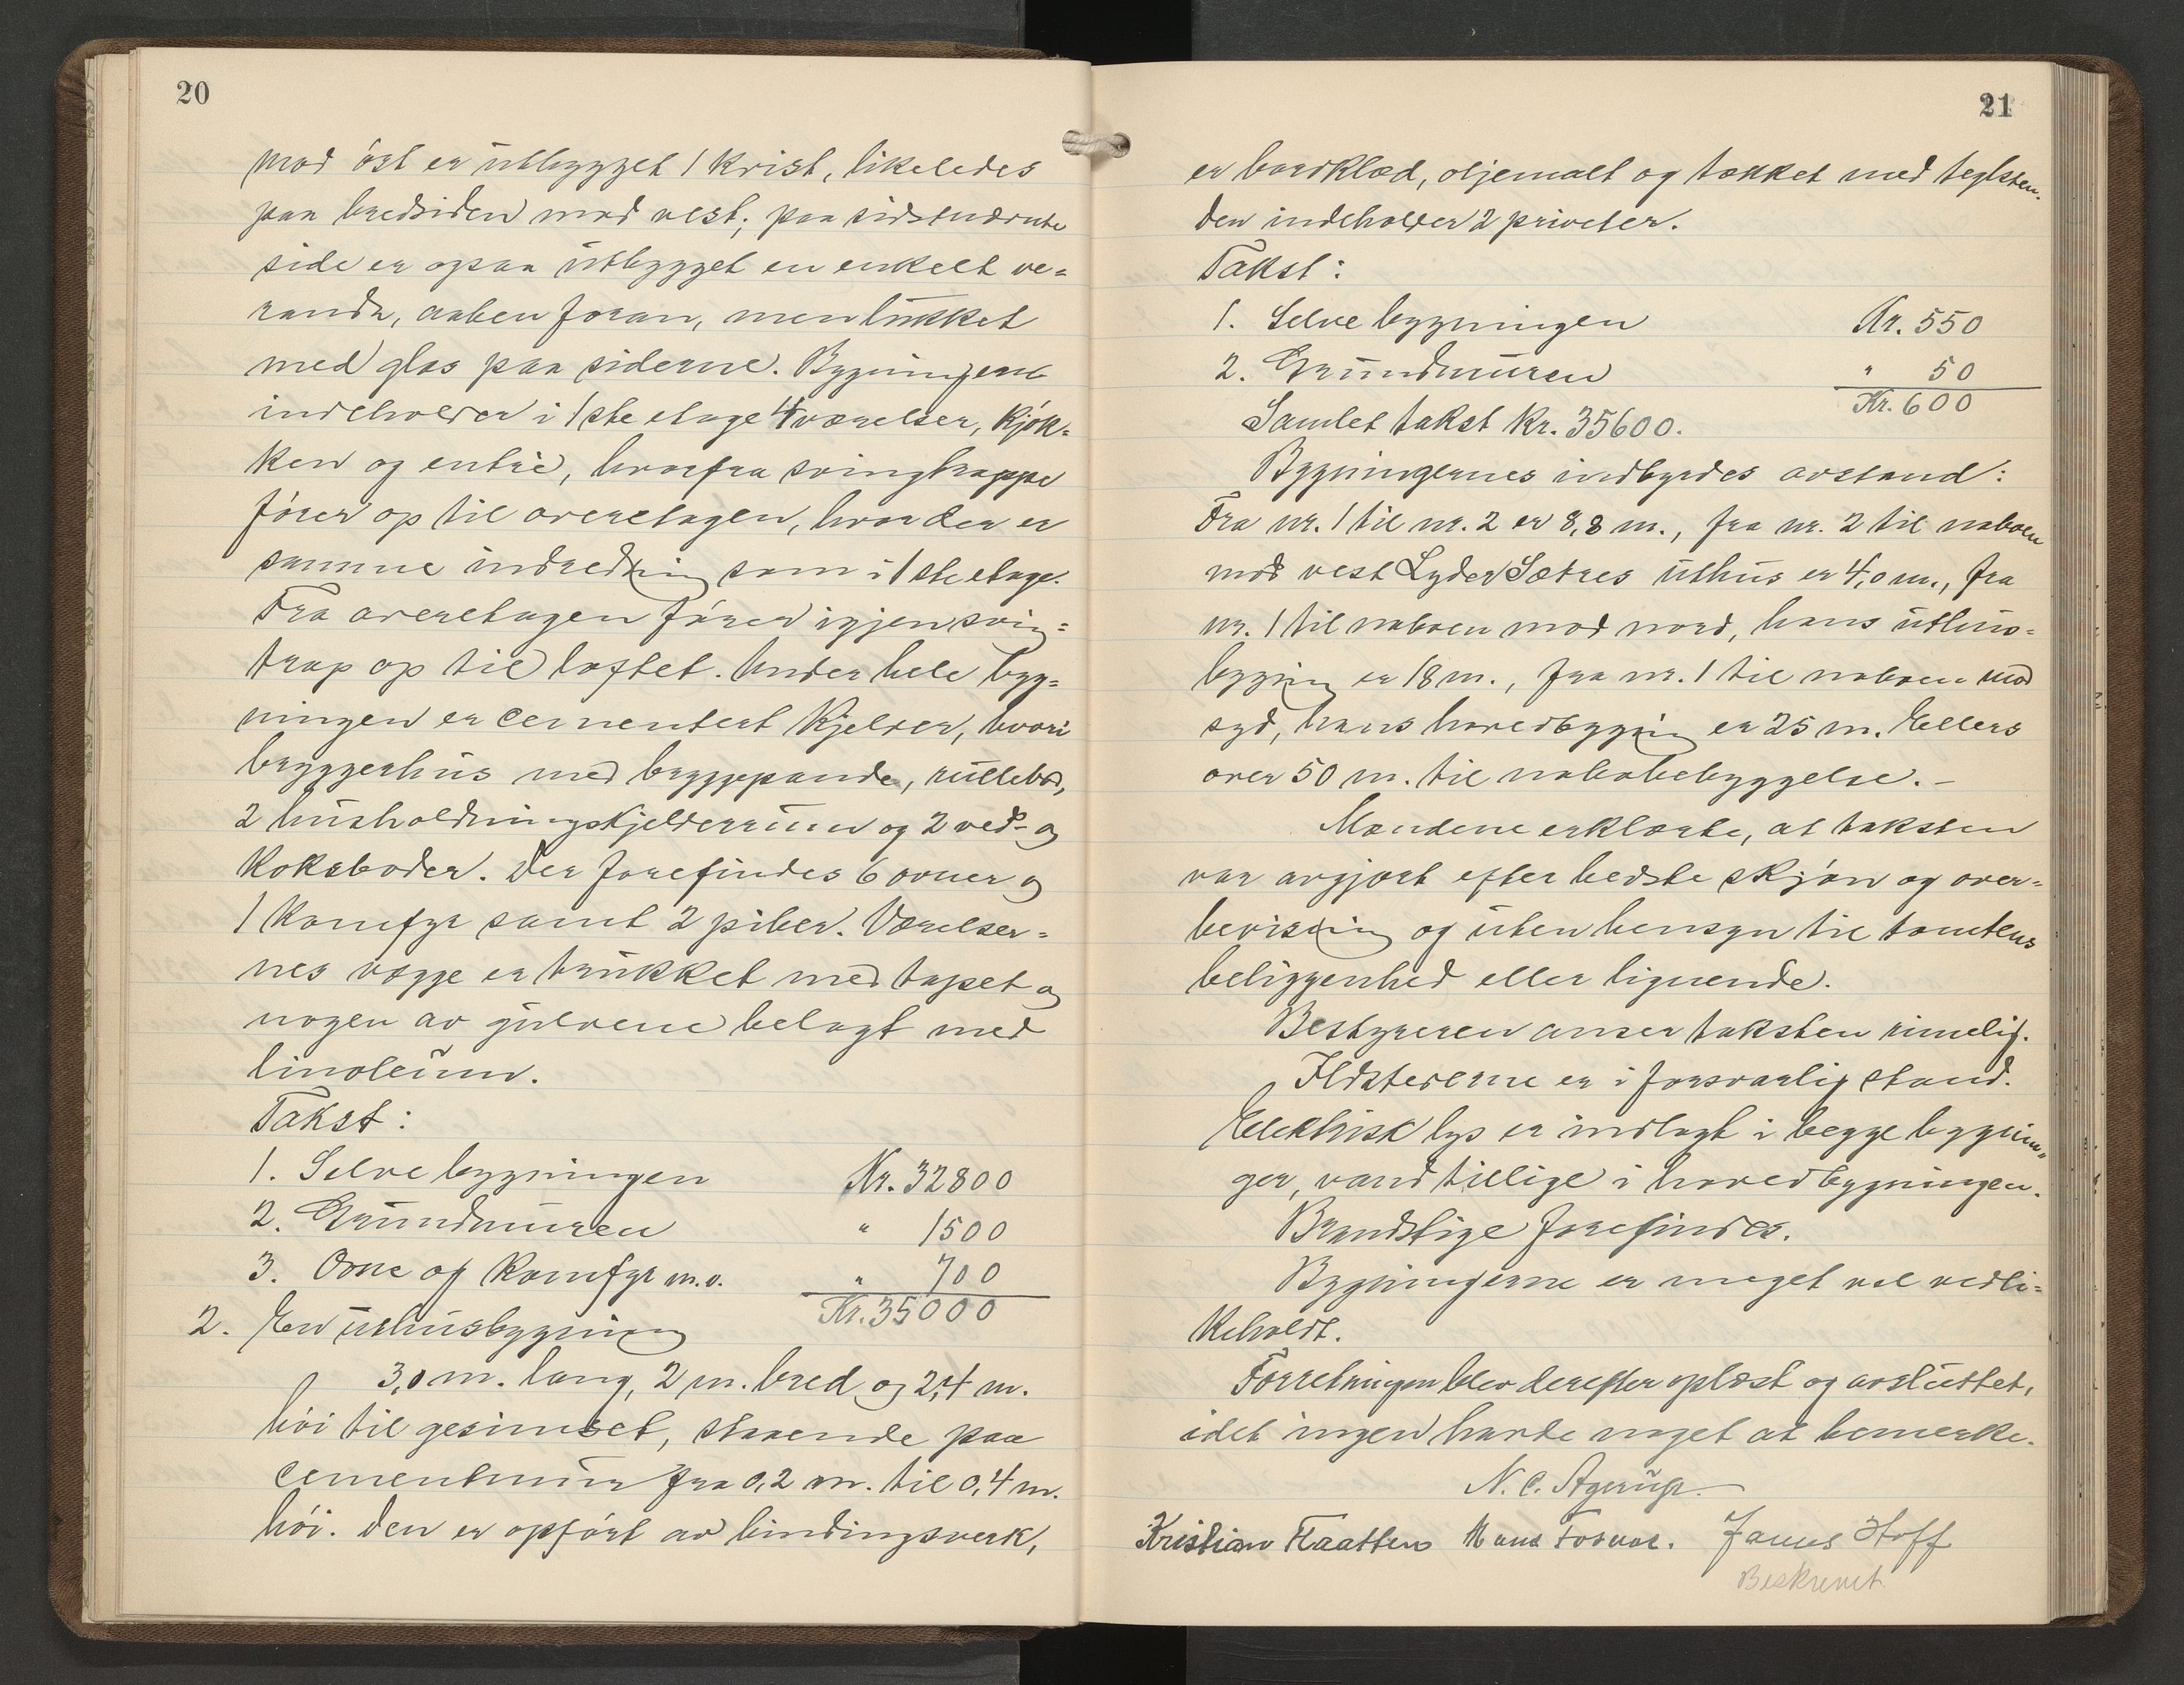 20
mod øst er utbygget 1 Krist, likeledes
paa bredsiden mod vest; paa sidstnævnte
side er ogsaa utbygget en enkelt ve=
randa, aaben foran, men lukket
med glas paa siderne. Bygningene
indeholder i 1ste etage 4 værelser, Kjøk=
ken og entré, hvorfra svingtrappe
fører op til overetagen, hvor der er
samme indredning som i 1ste etage.
Fra overetagen fører igjen sving=
trap op til loftet. Under hele byg=
ningen er cementert Kjelder, hvori
bryggerhus med bryggepande, rullebod,
2 husholdningskjelderrum og 2 ved- og
Koksboder. Der forefindes 6 ovner og
1 Komfyr samt 2 piber. Værelser=
nes vægge er trukket med tapet og
nogen av gulvene belagt med
linoleum.
Takst:
1. Selve bygningen Kr. 32800
2. Grundmuren " 1500
3. Ovne og Komfyr m.v. " 700
Kr. 35000
2. En uthusbygning
3,0 m. lang, 2 m. bred og 2,4 m.
høi til gesimset, staaende paa
cementmur fra 0,2 m. til 0,4 m.
høi. Den er opført av bindingsverk,
21
er bordklæd, oljemalt og tækket med teglsten.
Den indeholder 2 priveter.
Takst:
1. Selve bygningen Kr. 550
2. Grundmuren " 50
Kr. 600
Samlet takst Kr. 35600.
Bygningernes indbyrdes avstand:
Fra nr. 1 til nr. 2 er 8,8 m., fra nr. 2 til naboen
mod vest Lyder Sætres uthus er 4,0 m., fra
nr. 1 til naboen mod nord, hans uthus=
bygning er 18 m., fra nr. 1 til naboen mod
syd, hans hovedbygning er 25 m. Ellers
over 50 m. til nabobebyggelse. –
Mændene erklærte, at taksten
var avgjort efter bedste skjøn og over=
bevisning og uten hensyn til tomtens
beliggenhed eller lignende.
Bestyreren anser taksten rimelig.
Ildstederne er i forsvarlig stand.
Elektrisk lys er indlagt i begge bygnin"
ger, vand tillige i hovedbygningen.
Brandstige forefindes.
Bygningerne er meget vel vedli=
keholdt.
Forretningen blev derefter oplæst og avsluttet,
idet ingen havde noget at bemerke.
N. C. Agerup.
Kristian Flaatten Hans Fosnæs. James Hoff
Beskrevet